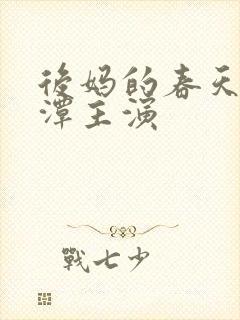 後妈的春天
潭主演
戰七少